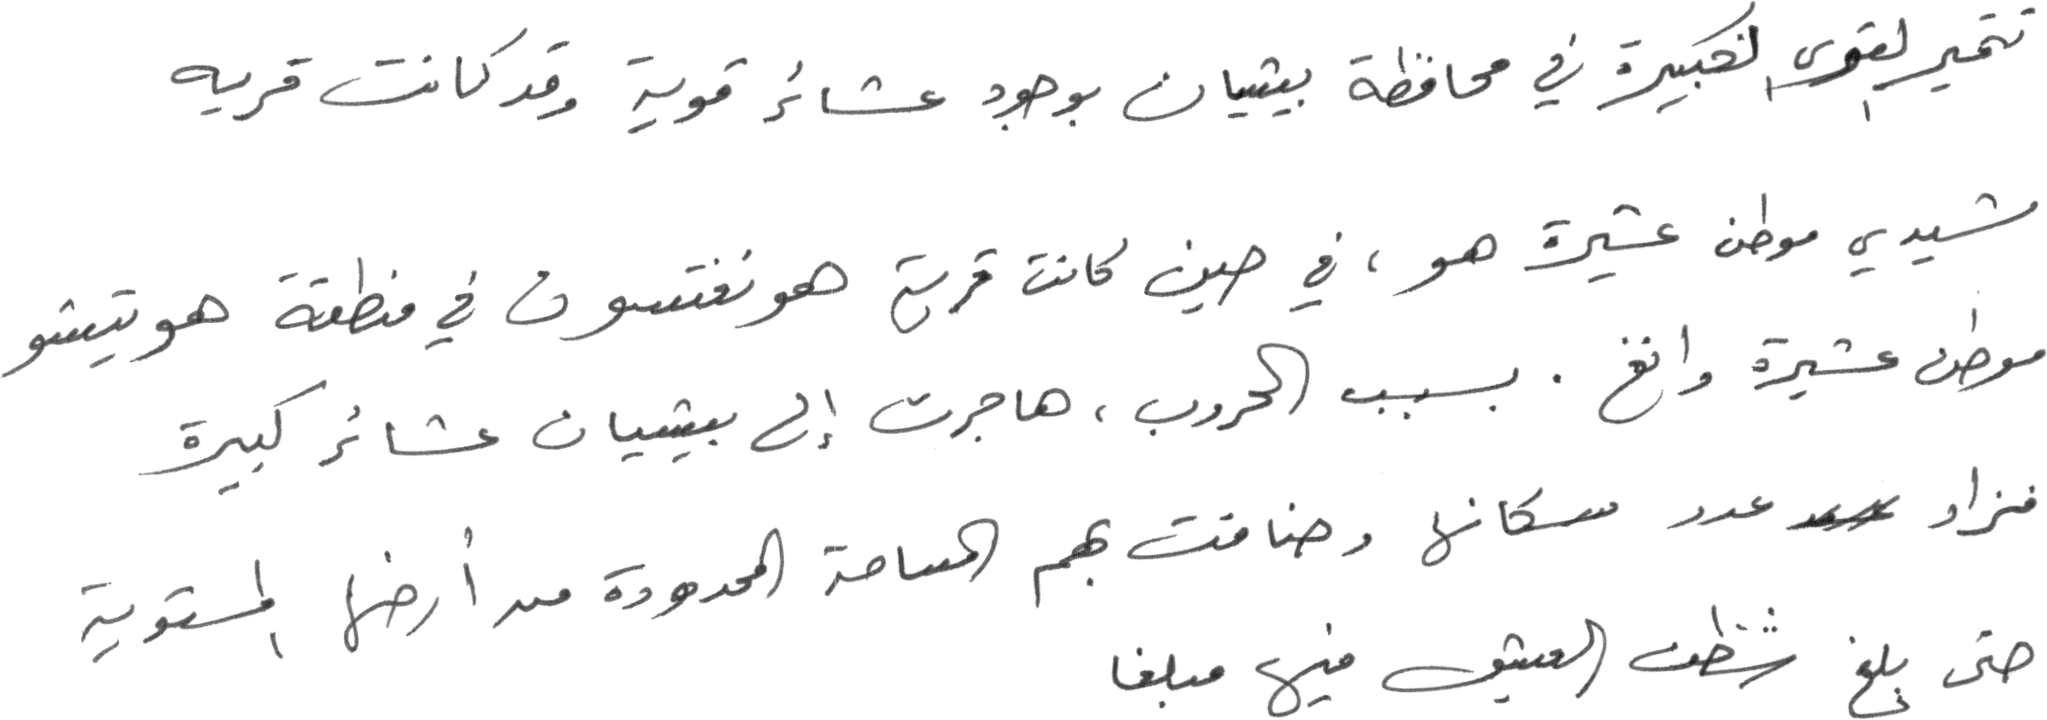 تتميز القرى الكبيرة في محافظة بيشيان بوجود عشائر قوية وقد كانت قريه
شيدي موطن عشيرة هو ، في حين كانت قرية هونغتسون في منطقة هوتيشو
موطن عشيرة وانغ . بسبب الحروب ، هاجرت إلى بيشيان عشائر كبيرة
فزاد عدد سكانها وضاقت بهم المساحة المحدودة من أرضها المستوية
حتى بلغ شظف العيش فيها مبلغا